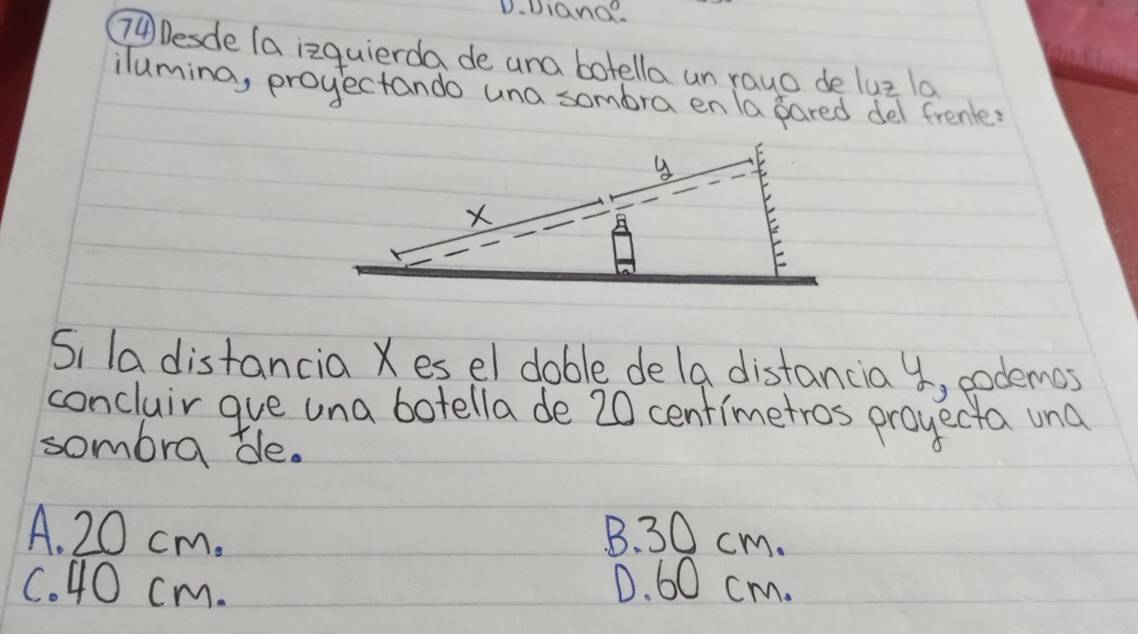 D. Diana.
74 Desde la izquierda de una botella un rayo de luz la
ilumina, proyectando una sombra en la pared del frente:
y
x
Si la distancia X es el doble de la distancia y, podemos
concluir que una botella de 20 centímetros proyecta una
sombra de.
A. 20 cm.
B. 30 cm.
C. 40 cm.
D. 60 cm.